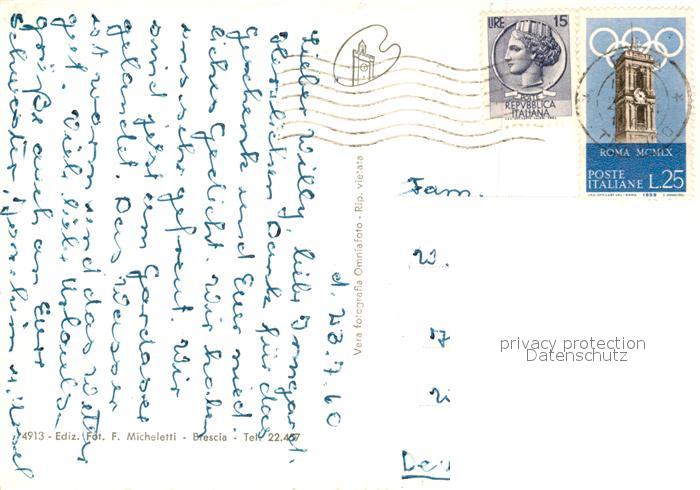 d. 23.7.60
Lieber Willy, liebe Irmgard.
Herzlichen Dank für das
Geschenk und Euer nied-
liches Gedicht. Wir haben
uns sehr gefreut. Wir
sind jetzt am Gardasee
gelandet. Das Wasser
ist warm und das Wetter
gut. Viele liebe Urlaubs-
grüße auch an Eure
Schwester,
4913 - Ediz. Fot. F. Micheletti - Brescia - Tel. 22.457
Vera fotografia Omniafoto - Rip. vietata
LIRE 15
REPVBBLICA
ITALIANA
ROMA MCMLX
POSTE
ITALIANE L.25
1959
Fam.
W.
privacy protection
Datenschutz